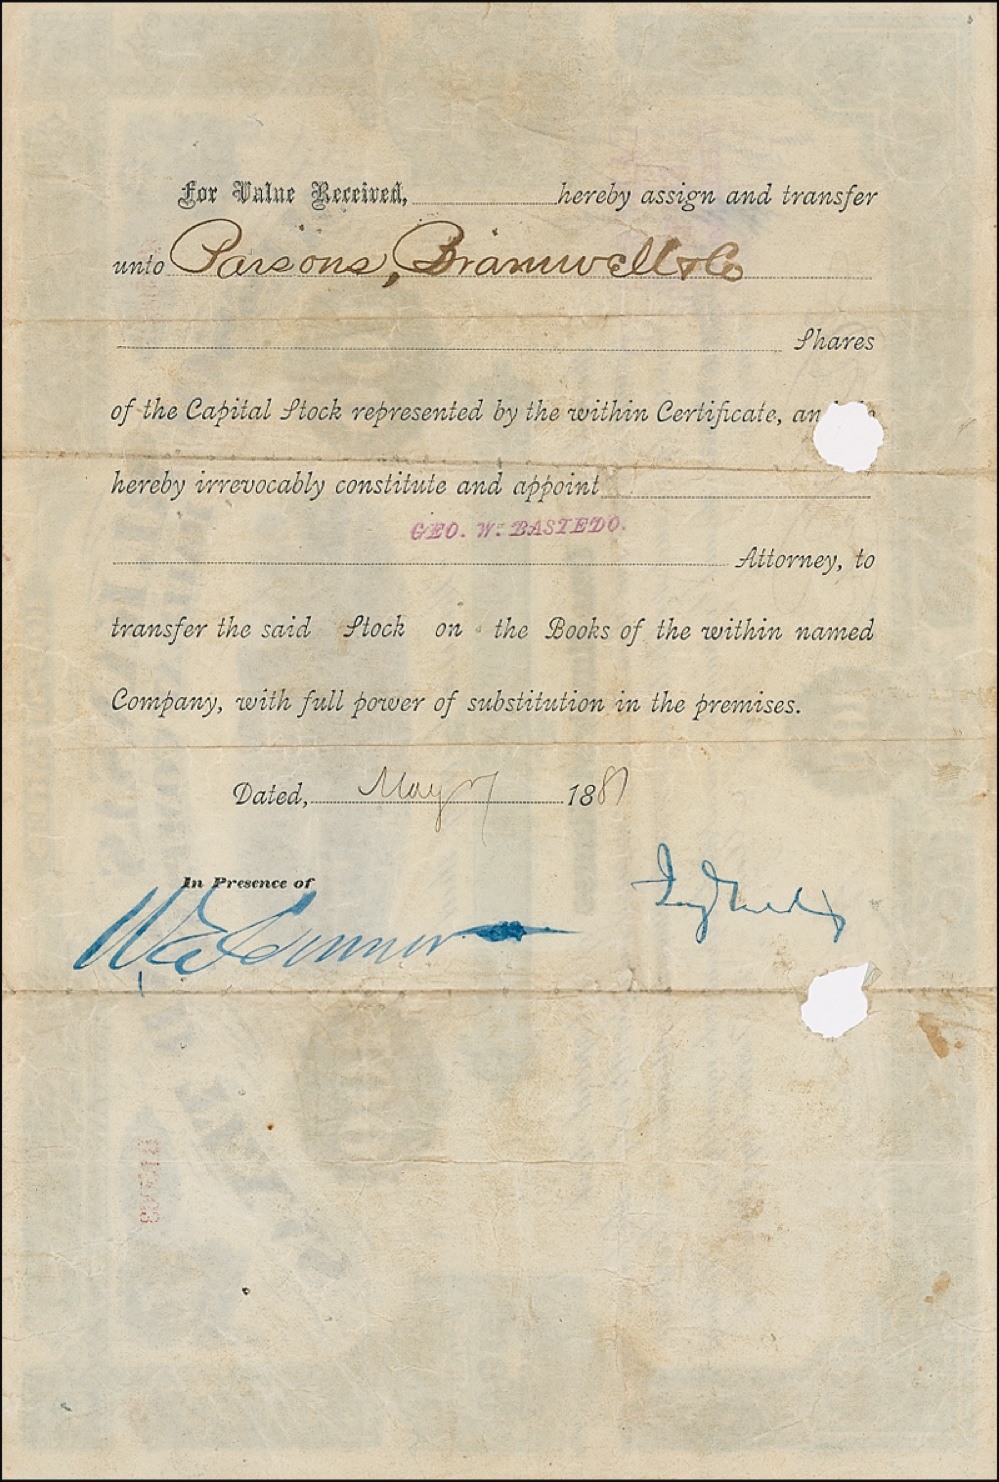 For Value Received, hereby assign and transfer
unto Parsons, Bramwell & Co
Shares
of the Capital Stock represented by the within Certificate, and do
hereby irrevocably constitute and appoint
GEO. W. BASTEDO.
Attorney, to
transfer the said Stock on the Books of the within named
Company, with full power of substitution in the premises.
Dated, May 7 1881
In Presence of
W E Connor